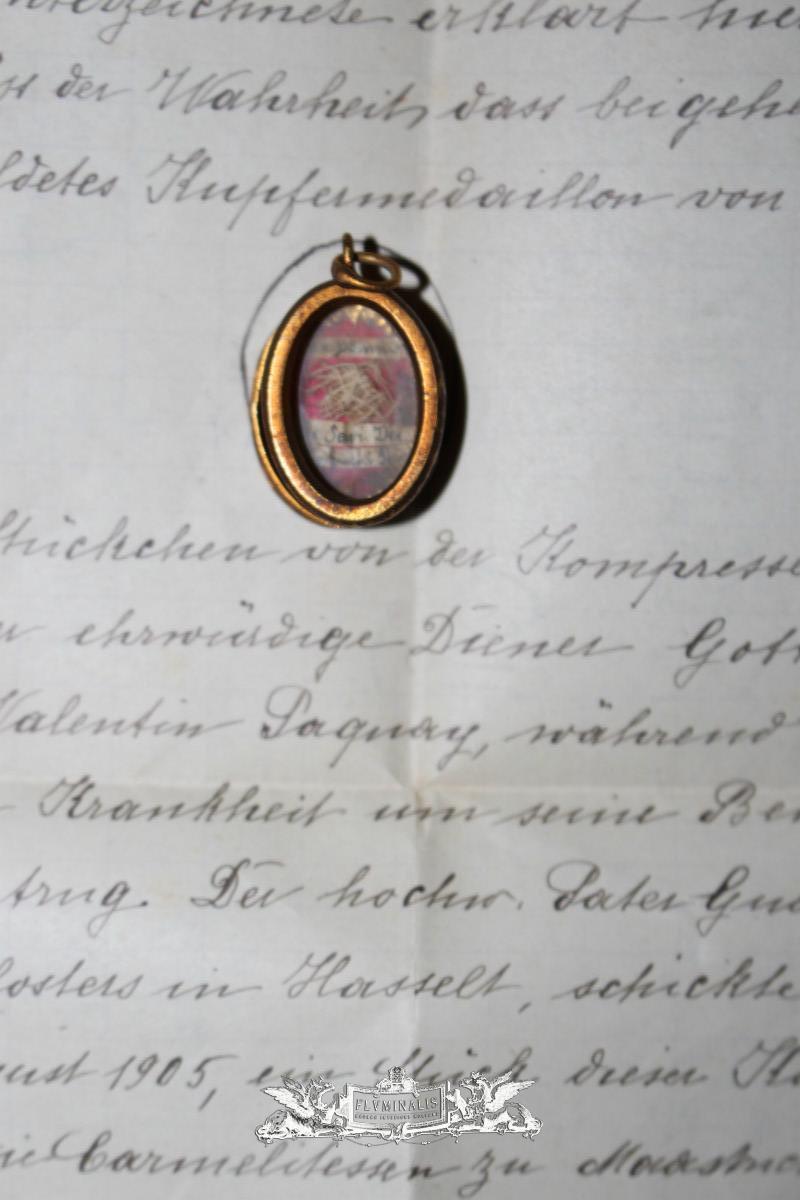 nterzeichnete erklärt hie
ss der Wahrheit, dass beigehe
ldetes Kupfermedaillon von
Serv. Dei
Stückchen von der Kompresse
er ehrwürdige Diener Gott
Valentin Paquay, während
Krankheit um seine Bei
trug. Der hochw. Pater Gua
losters in Hasselt, schickte
gust 1905, ein Stück dieser Ko
ie Carmelitessen zu Maastric
FLVMINALIS